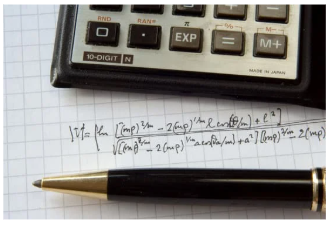 RND RAN# π % M-
0 · EXP = M+
10-DIGIT N
MADE IN JAPAN
|V|=
[(mp)^2/m - 2(mp)^1/m l cos(θ/m) + l^2]
- 2(mp)^1/m a cos(θ/m) + a^2] [(mp)^2/m - 2(mp)